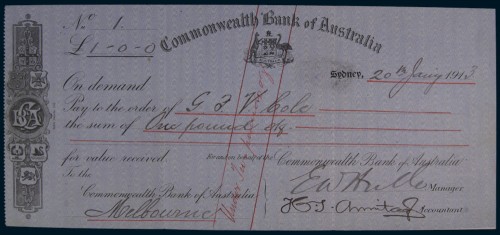 No. 1.
Commonwealth Bank of Australia
£1-0-0
Sydney, 20th Jany 1913
On demand
Pay to the order of G F V Cole
the sum of One pound
for value received. For and on behalf of the Commonwealth Bank of Australia
To the
Commonwealth Bank of Australia
Manager
Melbourne
Accountant